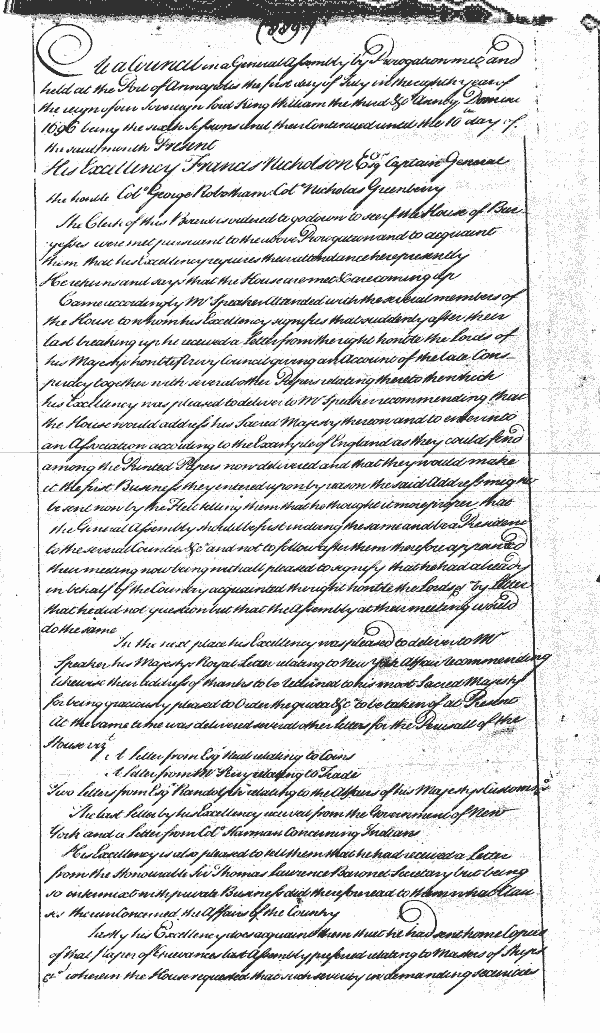 (889)
At a Council in a General Assembly by Prorogation met and
held at the Port of Annapolis the first day of July in the eighth year of
the reign of our Sovereign Lord King William the third &c Annoq Domini
1696 being the sixth Sessions and then Continued until the 10 day of
the said month Present
His Excellency Francis Nicholson Esqr Captain General
the honble Colo George Robotham Colo Nicholas Greenberry
The Clerk of this Board is ordered to go down to see if the House of Bur
gesses were met pursuant to the above Prorogation and to acquaint
them that his Excellency requires their attendance here presently
He returns and says that the House are met & are coming up
Came accordingly Mr Speaker attended with the several members of
the House to whom his Excellency signifies that suddenly after their
last breaking up he received a Letter from the right honble the Lords of
his Majestys honble Privy Council giving an Account of the late Cons
piracy together with several other Papers relating thereto then which
his Excellency was pleased to deliver to Mr Speaker recommending that
the House would address his Sacred Majesty thereon and to enter into
an Association according to the Example of England as they could find
among the Printed Papers now delivered and that they would make
it the first Business they entered upon by reason the said Address might
be sent now by the Fleet telling them that he thought it more proper that
the General Assembly should be first in doing the same and be a President
to the several Counties &c and not to follow after them therefore appointed
their meeting now being withall pleased to signify that he had already
in behalf of the Country acquainted the right honble the Lords &c by Letter
that he did not question but that the Assembly at their meeting would
do the same
In the next place his Excellency was pleased to deliver to Mr
Speaker his Majestys Royal Letter relating to New York Affair recommending
likewise their address of thanks to be returned to his most Sacred Majesty
for being graciously pleased to Order the quota &c to be taken of at Present
At the same time was delivered several other letters for the Perusall of the
House vizt
A letter from Esqr Neal relating to Coins
A letter from Mr Pery relating to Trade
Two letters from Esqr Randolph relating to the Affairs of his Majestys Customs
The last Letter by his Excellency received from the Government of New
York and a letter from Colo Harman Concerning Indians
His Excellency is also pleased to tell them that he had received a Letter
from the Honourable Sir Thomas Lawrence Baronet Secretary but being
so intermixt with private Business did therefore read to them what Clau
ses therein Concerned the Affairs of the Country
Lastly his Excellency does acquaint them that he had sent home Copies
of that Paper of Grievances last Assembly preferred relating to Masters of Ships
&c wherein the House requested that such severity in demanding securities